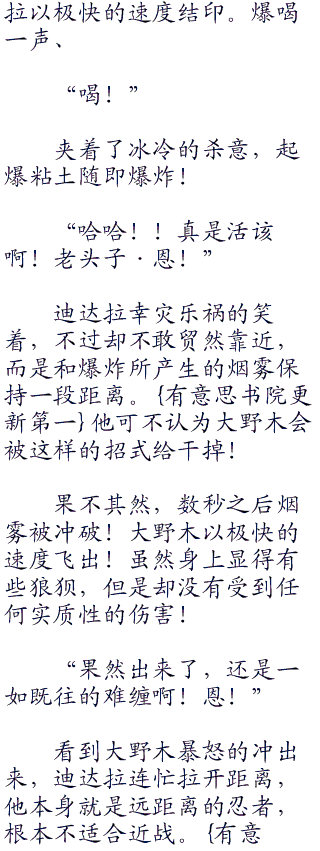 拉以极快的速度结印。爆喝
一声、
“喝！”
夹着了冰冷的杀意，起
爆粘土随即爆炸！
“哈哈！！真是活该
啊！老头子·恩！”
迪达拉幸灾乐祸的笑
着，不过却不敢贸然靠近，
而是和爆炸所产生的烟雾保
持一段距离。{有意思书院更
新第一}他可不认为大野木会
被这样的招式给干掉！
果不其然，数秒之后烟
雾被冲破！大野木以极快的
速度飞出！虽然身上显得有
些狼狈，但是却没有受到任
何实质性的伤害！
“果然出来了，还是一
如既往的难缠啊！恩！”
看到大野木暴怒的冲出
来，迪达拉连忙拉开距离，
他本身就是远距离的忍者，
根本不适合近战。{有意